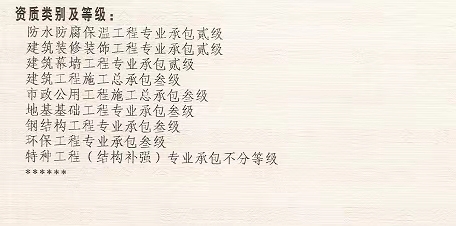 资质类别及等级：
防水防腐保温工程专业承包贰级
建筑装修装饰工程专业承包贰级
建筑幕墙工程专业承包贰级
建筑工程施工总承包叁级
市政公用工程施工总承包叁级
地基基础工程专业承包叁级
钢结构工程专业承包叁级
环保工程专业承包叁级
特种工程（结构补强）专业承包不分等级
******